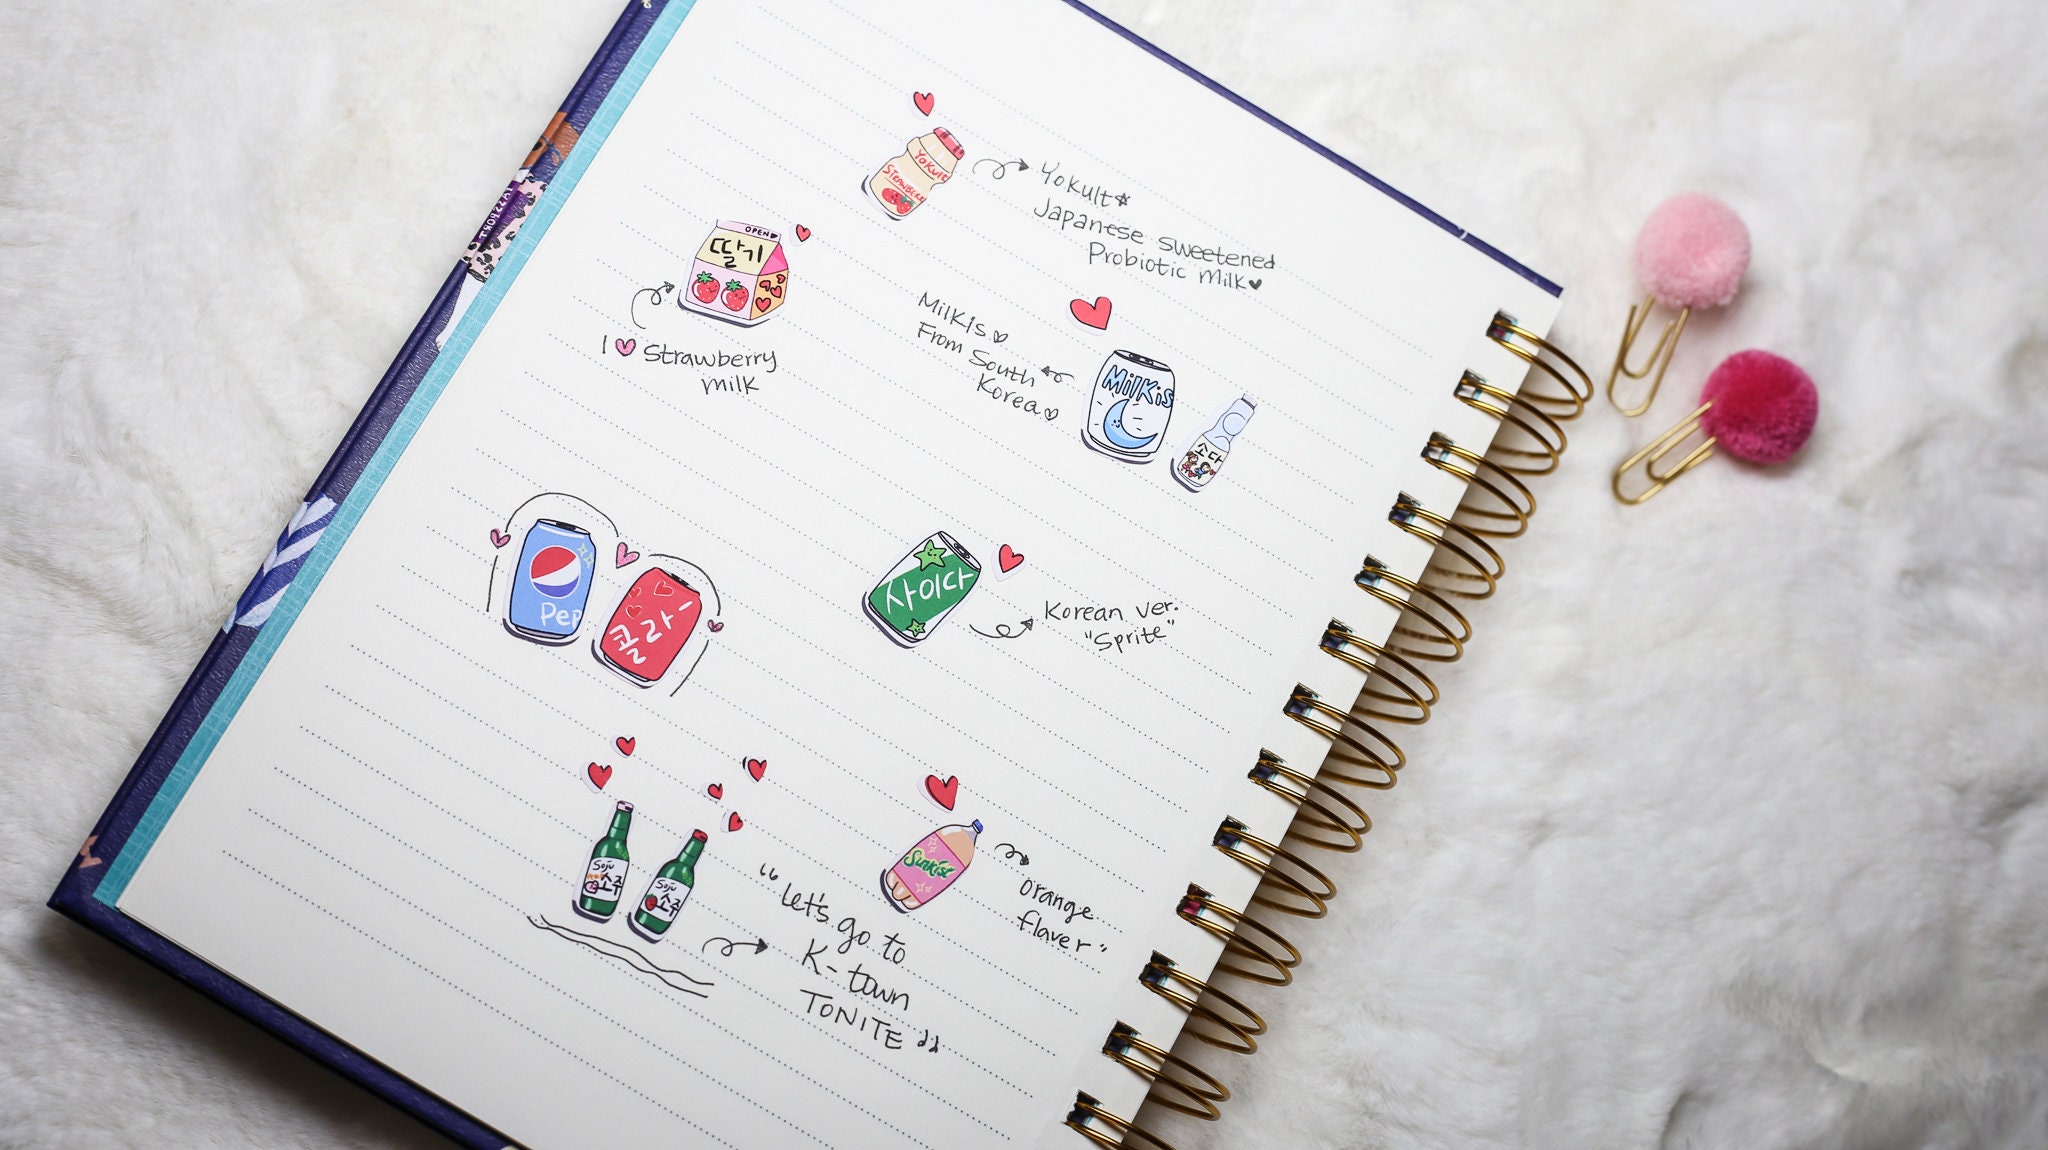 YoKult
STRAWBERRY
Yokult
Japanese sweetened
Probiotic Milk
OPEN
딸기
I
Strawberry
milk
Milkis
From South
Korea
Milkis
소다
Pep
콜라
사이다
Korean ver.
"Sprite"
Soju
소주
Soju
소주
"Let's go to
K-town
TONITE
Sunkist
orange
flaver"
PASSPORT